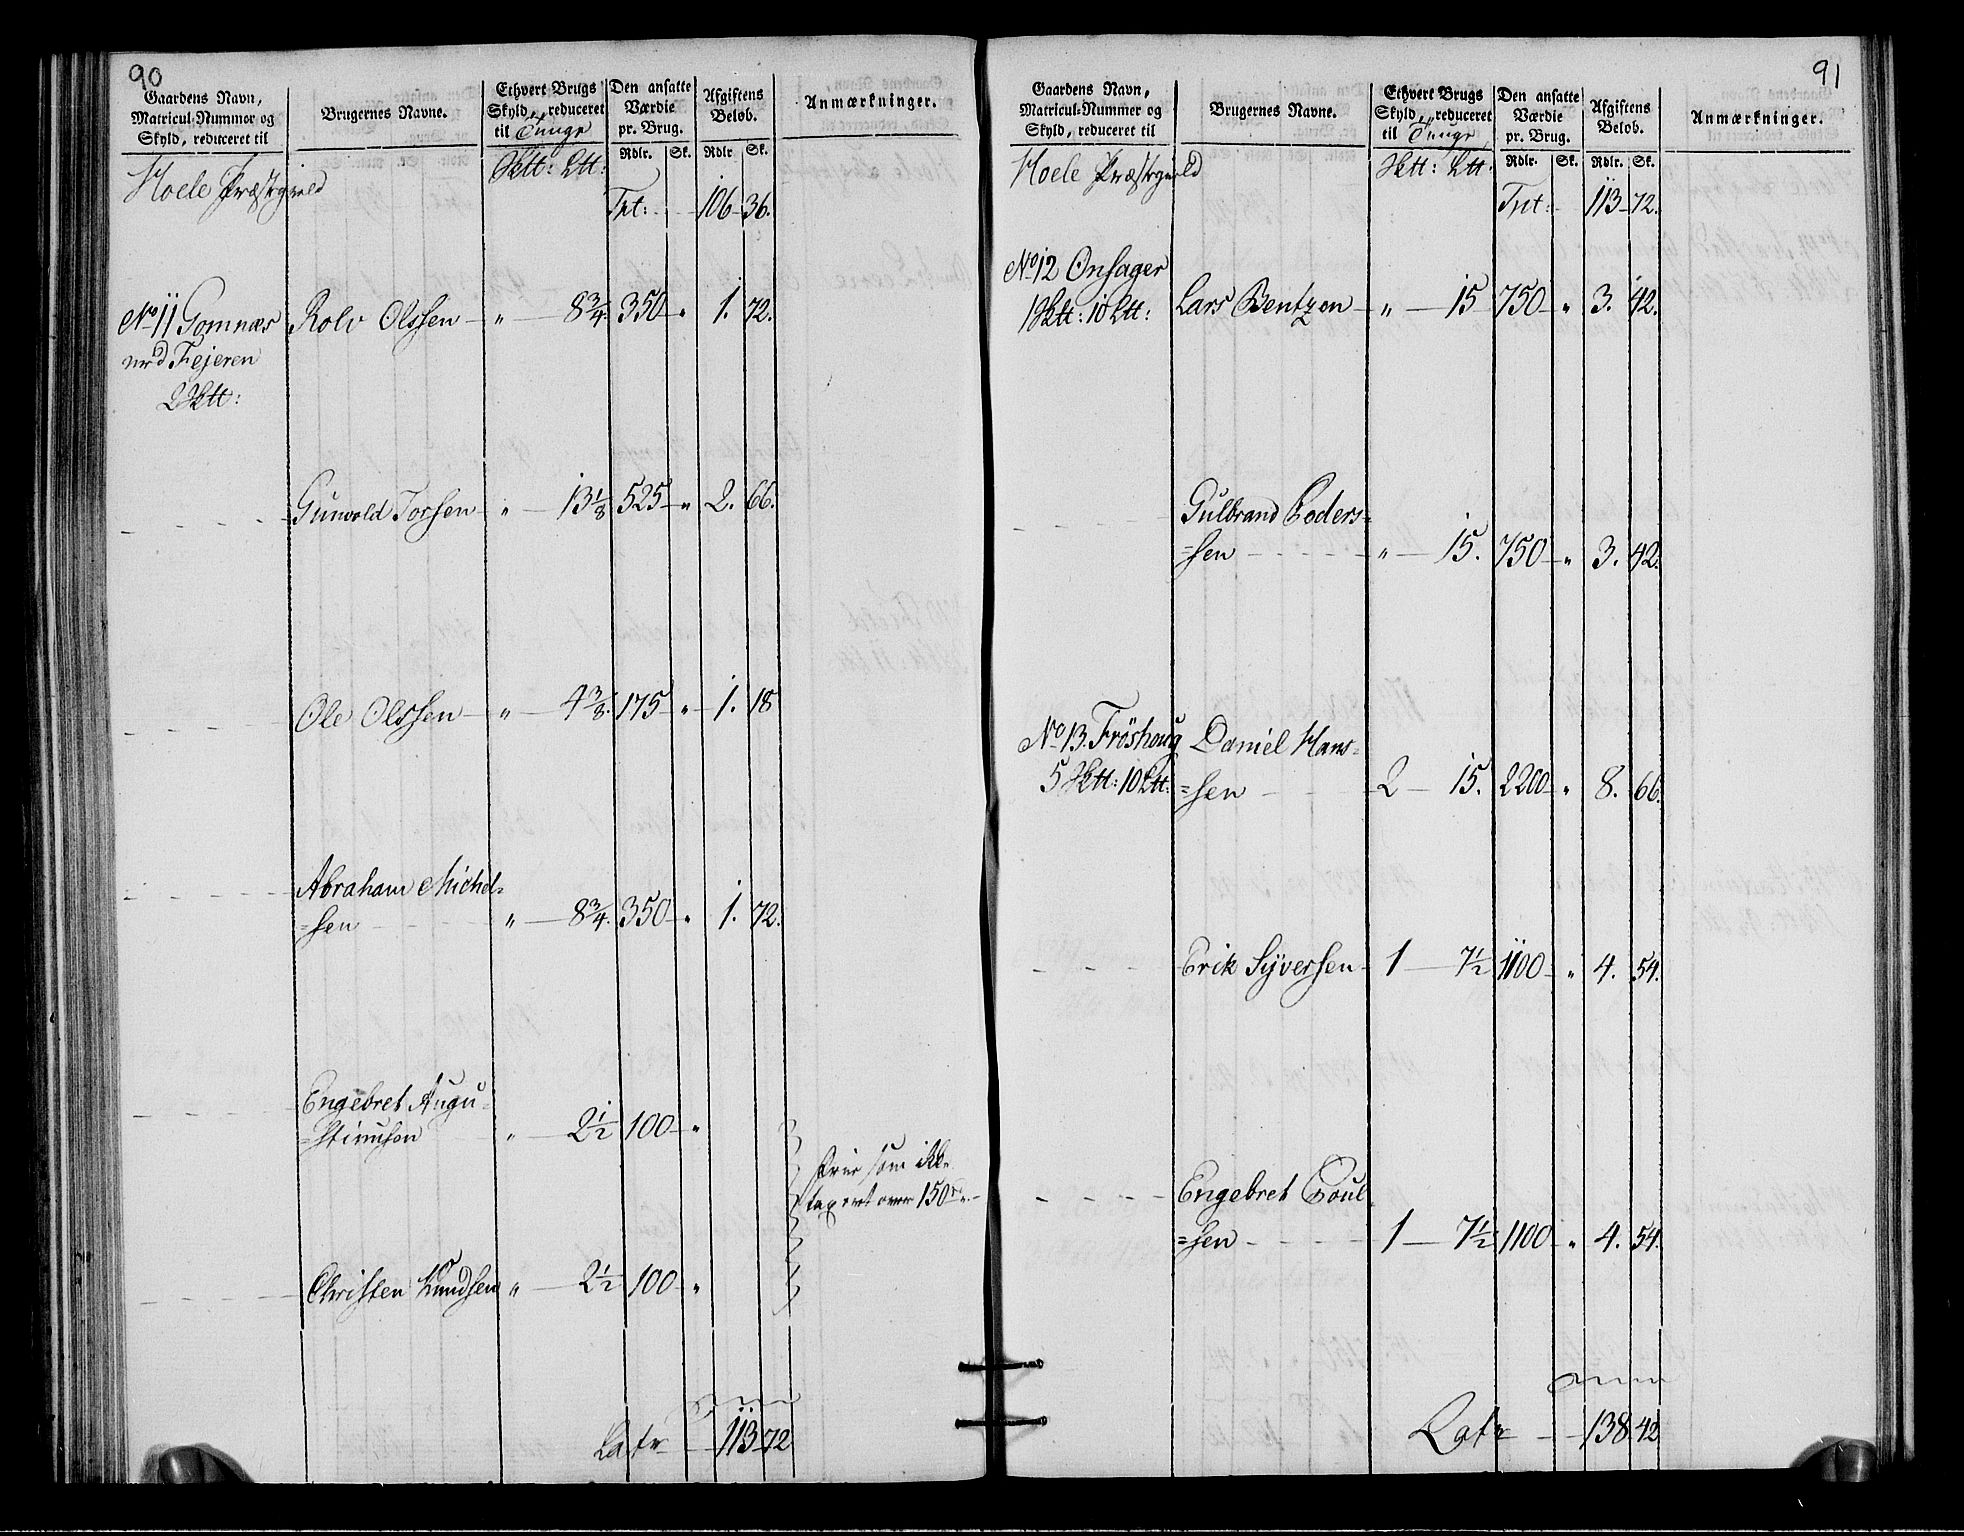 90
Gaardens Navn,
Matricul-Nummer og
Skyld, reduceret til
Brugernes Navne.
Ethvert Brugs
Skyld, reduceret
til Tunge
Den ansatte
Værdie
pr. Brug.
Afgiftens
Beløb.
Anmærkninger.
Rdlr. Sk. Rdlr Sk.
Hoele Præstegield
Sktt: Ltt:
Trt: 106 36.
No 11 Gomnæs
med Fejeren
2 Sktt:
Rolv Olssen " 8 3/4 350 " 1. 72.
Gunvold Torsen " 13 1/8 525 " 2. 66.
Ole Olssen " 4 3/8. 175 " 1. 18
Abraham Michel=
=sen " 8 3/4. 350 " 1. 72.
Engebret Augu=
=stinusen " 2 1/2 100 "
frie som ikke
taxeret over 150
Christen Knudsen " 2 1/2 100 "
Latr 113 72
91
Gaardens Navn,
Matricul-Nummer og
Skyld, reduceret til
Brugernes Navne.
Ethvert Brugs
Skyld, reduceret
til Tunge
Den ansatte
Værdie
pr. Brug.
Afgiftens
Beløb.
Anmærkninger.
Rdlr. Sk. Rdlr. Sk.
Hoele Præstegield
Sktt: Ltt:
Trt: 113 72.
No 12 Onsager
1 Sktt: 10 Ltt:
Lars Bentzon " 15 750 " 3. 42.
Gulbrand Poders=
=sen " 15. 750 " 3. 42.
No 13. Fröshoug
5 Sktt: 10 Ltt:
Daniel Hans=
=sen 2 15. 2200 " 8. 66.
Erik Syversen 1 7 1/2 1100 " 4. 54.
Engebret Poul
=sen 1 7 1/2 1100 " 4. 54.
Latr 138 42